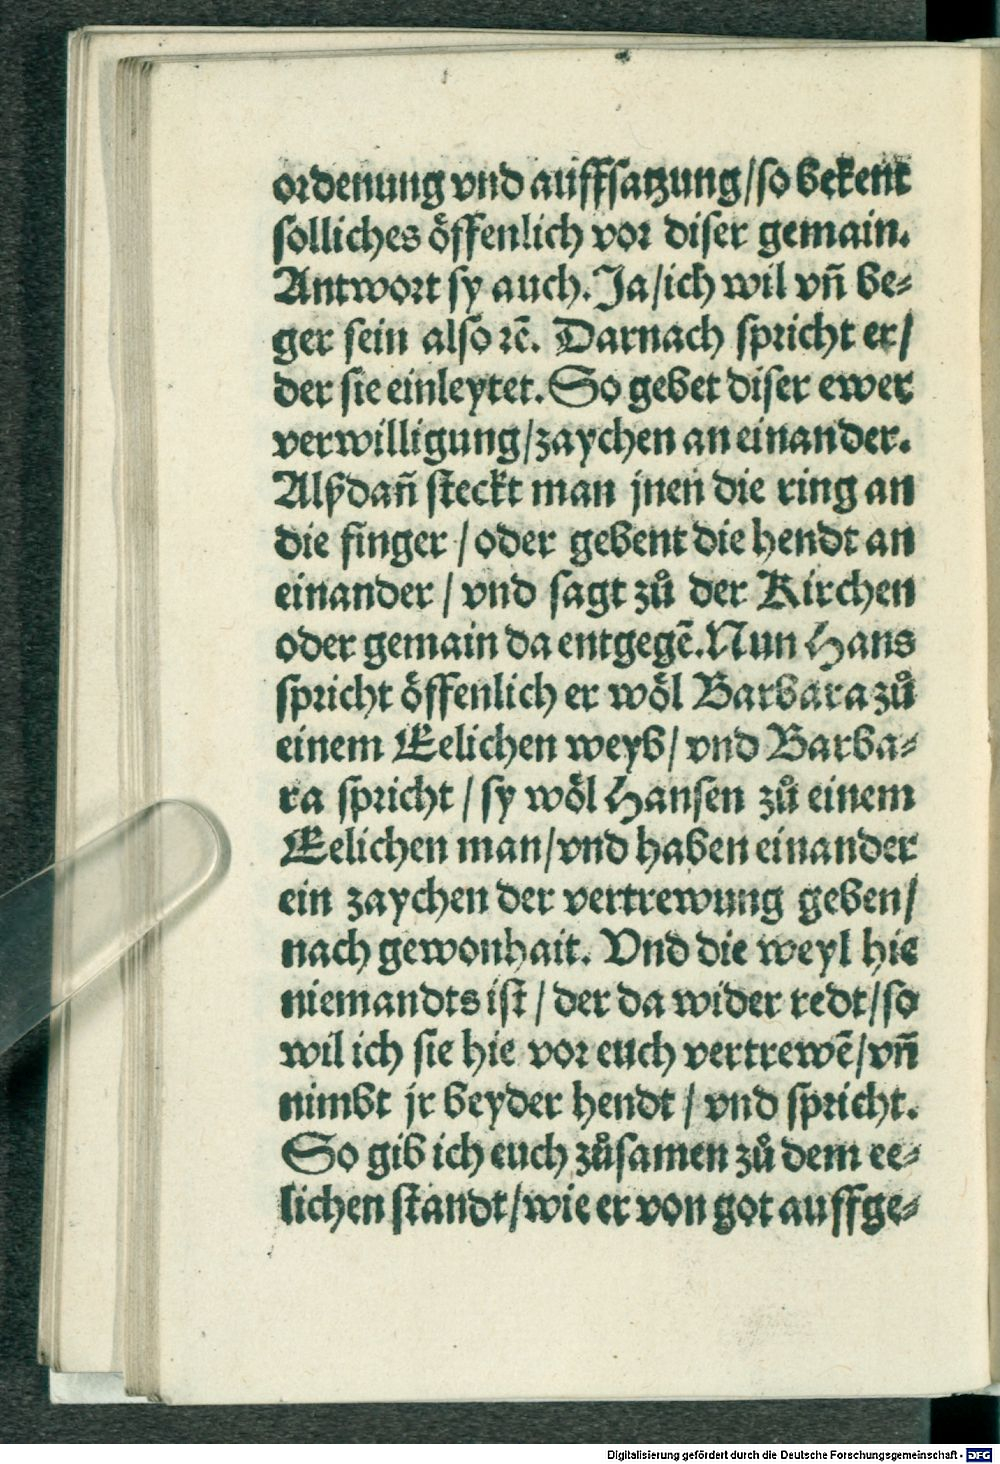 ordenung vnd auffsatzung/so bekent
solliches öffenlich vor diser gemain.
Antwort sy auch. Ja/ich wil vn̄ be⸗
ger sein also ⁊c̄. Darnach spricht er/
der sie einleytet. So gebet diser ewer
verwilligung/zaychen an einander.
Alßdan̄ steckt man jnen die ring an
die finger / oder gebent die hendt an
einander / vnd sagt zů der Kirchen
oder gemain da entgegē. Nun Hans
spricht öffenlich er wöl Barbara zů
einem Eelichen weyb/ vnd Barba⸗
ra spricht / sy wöl Hansen zů einem
Eelichen man/vnd haben einander
ein zaychen der vertrewung geben/
nach gewonhait. Vnd die weyl hie
niemandts ist / der da wider redt/so
wil ich sie hie vor euch vertrewē/vn̄
nimbt jr beyder hendt / vnd spricht.
So gib ich euch zůsamen zů dem ee⸗
lichen standt/wie er von got auffge⸗
Digitalisierung gefördert durch die Deutsche Forschungsgemeinschaft - DFG